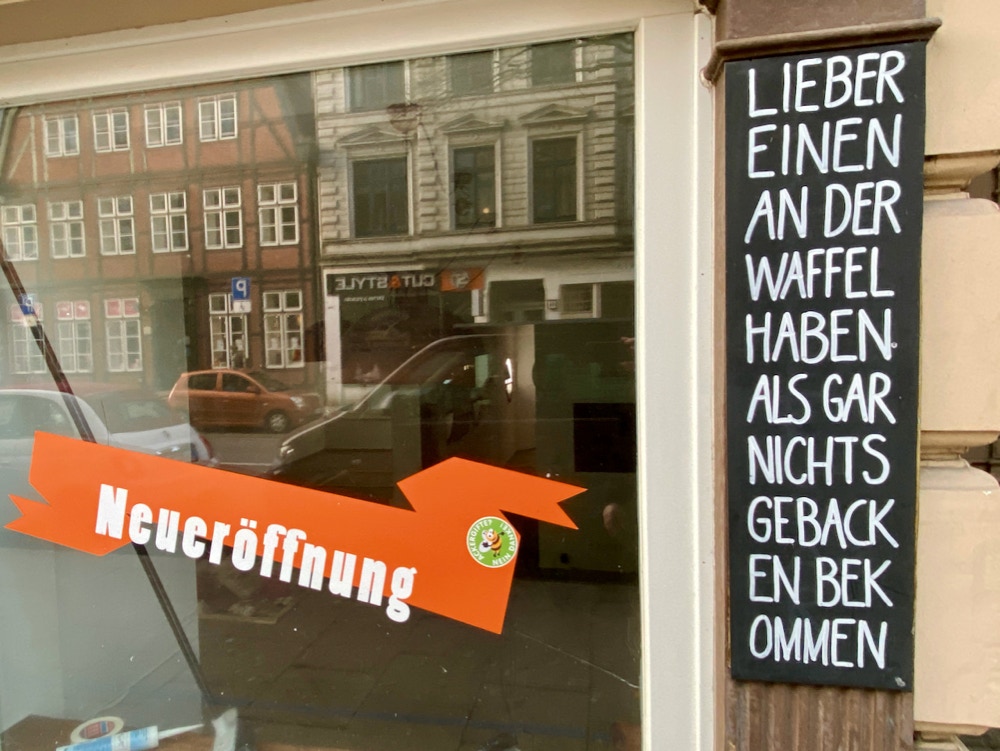 LIEBER
EINEN
AN DER
WAFFEL
HABEN.
ALS GAR
NICHTS
GEBACK
EN BEK
OMMEN
Neueröffnung
ACKERGIFTE? NEIN DANKE!
CUT&STYLE
P